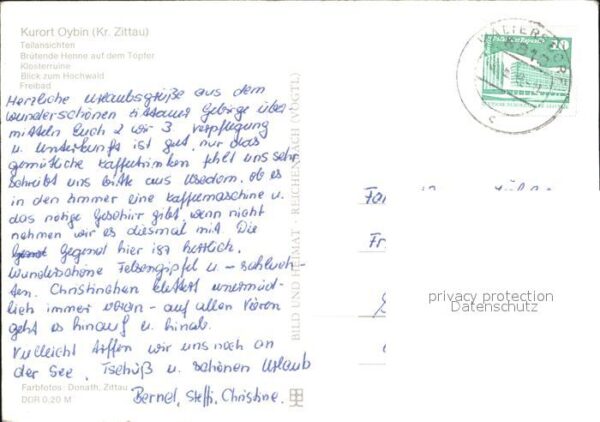 Kurort Oybin (Kr. Zittau)
Teilansichten
Brütende Henne auf dem Töpfer
Klosterruine
Blick zum Hochwald
Freibad
Herzliche Urlaubsgrüße aus dem
wunderschönen Zittauer Gebirge über-
mitteln Euch 2 wir 3. Verpflegung
u. Unterkunft ist gut, nur das
gemütliche Kaffeetrinken fehlt uns sehr.
Schreibt uns bitte aus Usedom, ob es
in den Zimmer eine Kaffeemaschine u.
das nötige Geschirr gibt, wenn nicht
nehmen wir es diesmal mit. Die
Gegend hier ist herrlich.
Wunderschöne Felsengipfel u. -schluch-
ten. Christinchen klettert unermüd-
lich immer voran - auf allen Vieren
geht es hinauf u. hinab.
Vielleicht treffen wir uns noch an
der See. Tschüß u. schönen Urlaub
Bernd, Steffi, Christine.
Farbfotos: Donath, Zittau
DDR 0,20 M
BILD UND HEIMAT · REICHENBACH (VOGTL)
10
privacy protection
Datenschutz